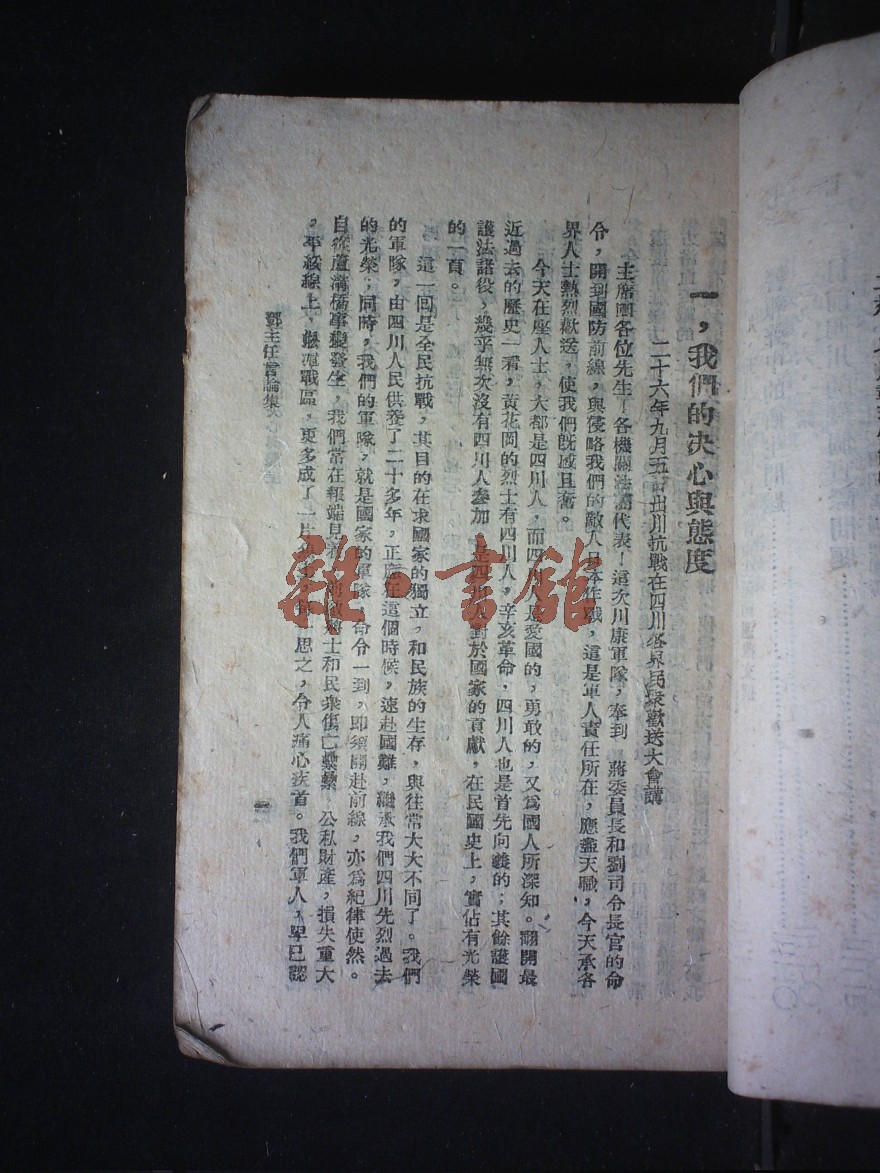 一，我們的決心與態度
二十六年九月五日出川抗戰在四川各界民衆歡送大會講
主席團各位先生！各機關法團代表！這次川康軍隊，奉到 蔣委員長和劉司令長官的命
令，開到國防前線，與侵略我們的敵人日本作戰，這是軍人責任所在，應盡天職，今天承各
界人士熱烈歡送，使我們旣感且奮。
今天在座人士，大都是四川人，而四川人是愛國的，勇敢的，又爲國人所深知。翻開最
近過去的歷史一看，黃花岡的烈士有四川人，辛亥革命，四川人也是首先向義的；其餘護國
護法諸役，幾乎無次沒有四川人參加，是四川人對於國家的貢獻，在民國史上，實佔有光榮
的一頁。
這一回是全民抗戰，其目的在求國家的獨立，和民族的生存，與往常大大不同了。我們
的軍隊，由四川人民供養了二十多年，正應在這個時候，速赴國難，繼承我們四川先烈過去
的光榮；同時，我們的軍隊，就是國家的軍隊，命令一到，即須開赴前線，亦爲紀律使然。
自從蘆溝橋事變發生，我們常在報端見着，前敵將士和民衆傷亡纍纍，公私財產，損失重大
，平綏線上，淞滬戰區，更多成了一片焦土，思之，令人痛心疾首。我們軍人，早已認
鄧主任言論集
一
雜書館